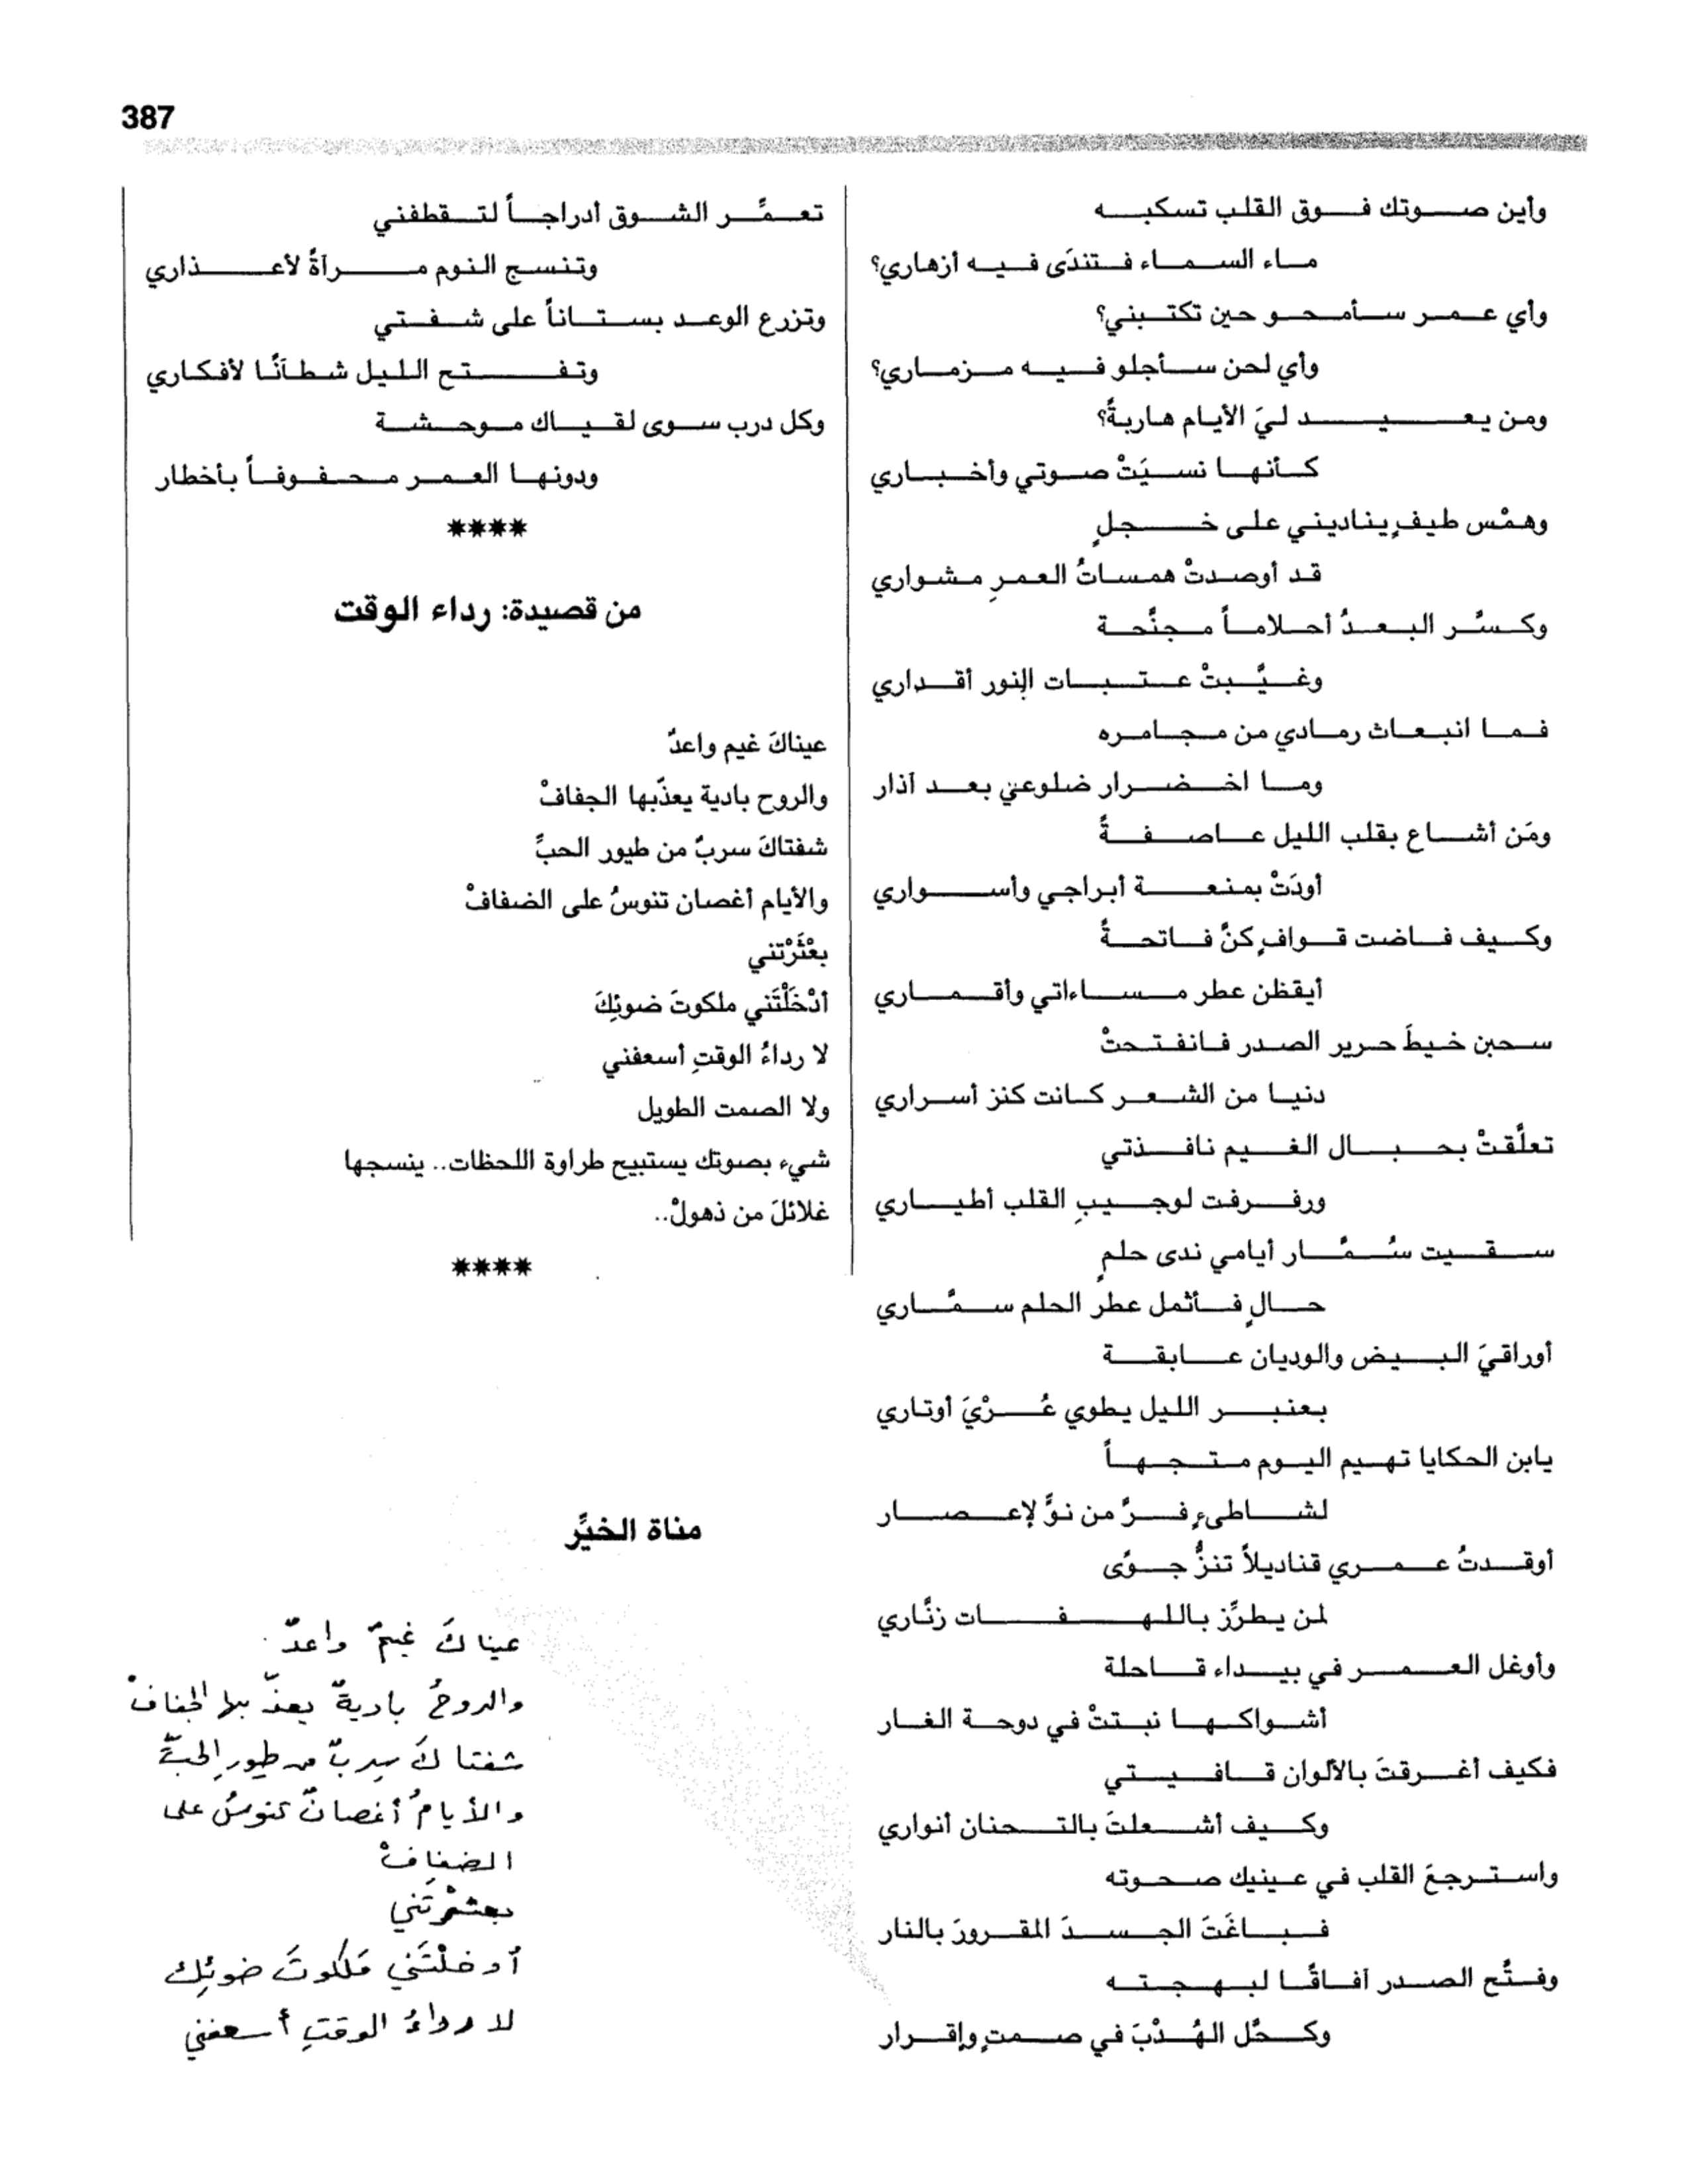 387
وأين صوتك فوق القلب تسكبه
ماء السماء فتندَى فيه أزهاري؟
وأي عمر سأمحو حين تكتبني؟
وأي لحن سأجلو فيه مزماري؟
ومن يعيد ليَ الأيام هاربةً؟
كأنها نسيَتْ صوتي وأخباري
وهمْس طيفٍ يناديني على خجلٍ
قد أوصدتْ همساتُ العمرِ مشواري
وكسَّر البعدُ أحلاماً مجنَّحة
وغيَّبتْ عتبات النور أقداري
فما انبعاث رمادي من مجامره
وما اخضرار ضلوعي بعد آذار
ومَن أشاع بقلب الليل عاصفةً
أودَتْ بمنعة أبراجي وأسواري
وكيف فاضت قوافٍ كنَّ فاتحةً
أيقظن عطر مساءاتي وأقماري
سحبن خيطَ حرير الصدر فانفتحتْ
دنيا من الشعر كانت كنز أسراري
تعلَّقتْ بحبال الغيم نافذتي
ورفرفت لوجيبِ القلب أطياري
سقيت سُمَّار أيامي ندى حلمٍ
حالٍ فأثمل عطرُ الحلم سمَّاري
أوراقيَ البيض والوديان عابقة
بعنبر الليل يطوي عُرْيَ أوتاري
يابن الحكايا تهيم اليوم متجهاً
لشاطىءٍ فرَّ من نوًّ لإعصار
أوقدتُ عمري قناديلاً تنزُّ جوًى
لمن يطرِّز باللهفات زنَّاري
وأوغل العمر في بيداء قاحلة
أشواكها نبتتْ في دوحة الغار
فكيف أغرقتَ بالألوان قافيتي
وكيف أشعلتَ بالتحنان أنواري
واسترجعَ القلب في عينيك صحوته
فباغَتَ الجسدَ المقرورَ بالنار
وفتَّح الصدر آفاقًا لبهجته
وكحَّل الهُدْبَ في صمتٍ وإقرار
تعمَّر الشوق أدراجاً لتقطفني
وتنسج النوم مرآةً لأعذاري
وتزرع الوعد بستاناً على شفتي
وتفتح الليل شطآنًا لأفكاري
وكل درب سوى لقياك موحشة
ودونها العمر محفوفاً بأخطار
****
من قصيدة: رداء الوقت
عيناكَ غيم واعدٌ
والروح بادية يعذّبها الجفافْ
شفتاكَ سربٌ من طيور الحبِّ
والأيام أغصان تنوسُ على الضفافْ
بعْثَرْتني
أدْخَلْتَني ملكوتَ ضوئِكَ
لا رداءُ الوقتِ أسعفني
ولا الصمت الطويل
شيء بصوتك يستبيح طراوة اللحظات.. ينسجها
غلائلَ من ذهولْ..
****
مناة الخيِّر
عيناكَ غيمٌ واعدٌ
والروحُ باديةٌ يعذّبها الجفافْ
شفتاكَ سربٌ من طيورِ الحبِّ
والأيامُ أغصانٌ تنوسُ على
الضفافْ
بعثرْتَني
أدخلْتَني مَلكوتَ ضوئِك
لا رداءُ الوقتِ أسعفني